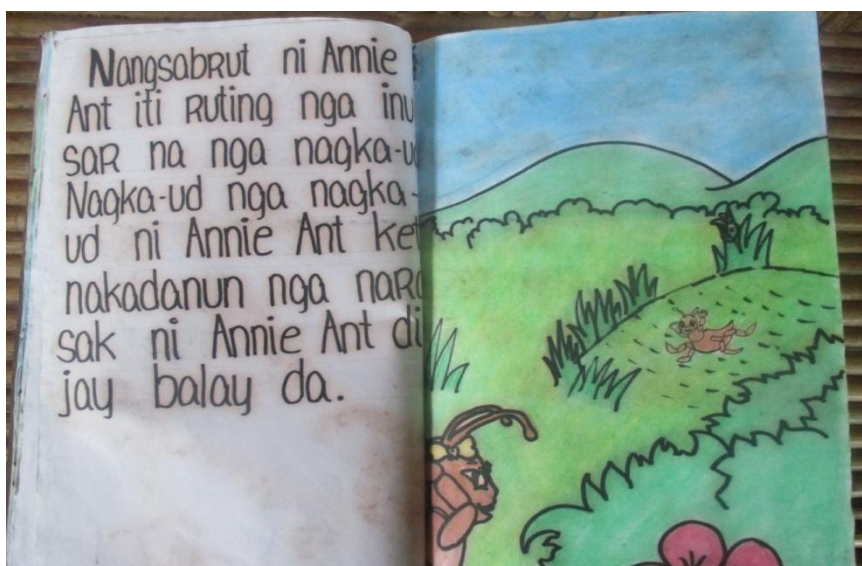 Nangsabrut ni Annie
Ant iti ruting nga inu
sar na nga nagka-ud
Nagka-ud nga nagka-
ud ni Annie Ant ket
nakadanun nga nara
sak ni Annie Ant di
jay balay da.